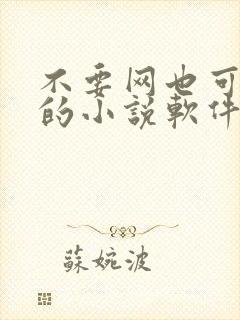 不要网也可
的小説軟件
蘇婉波